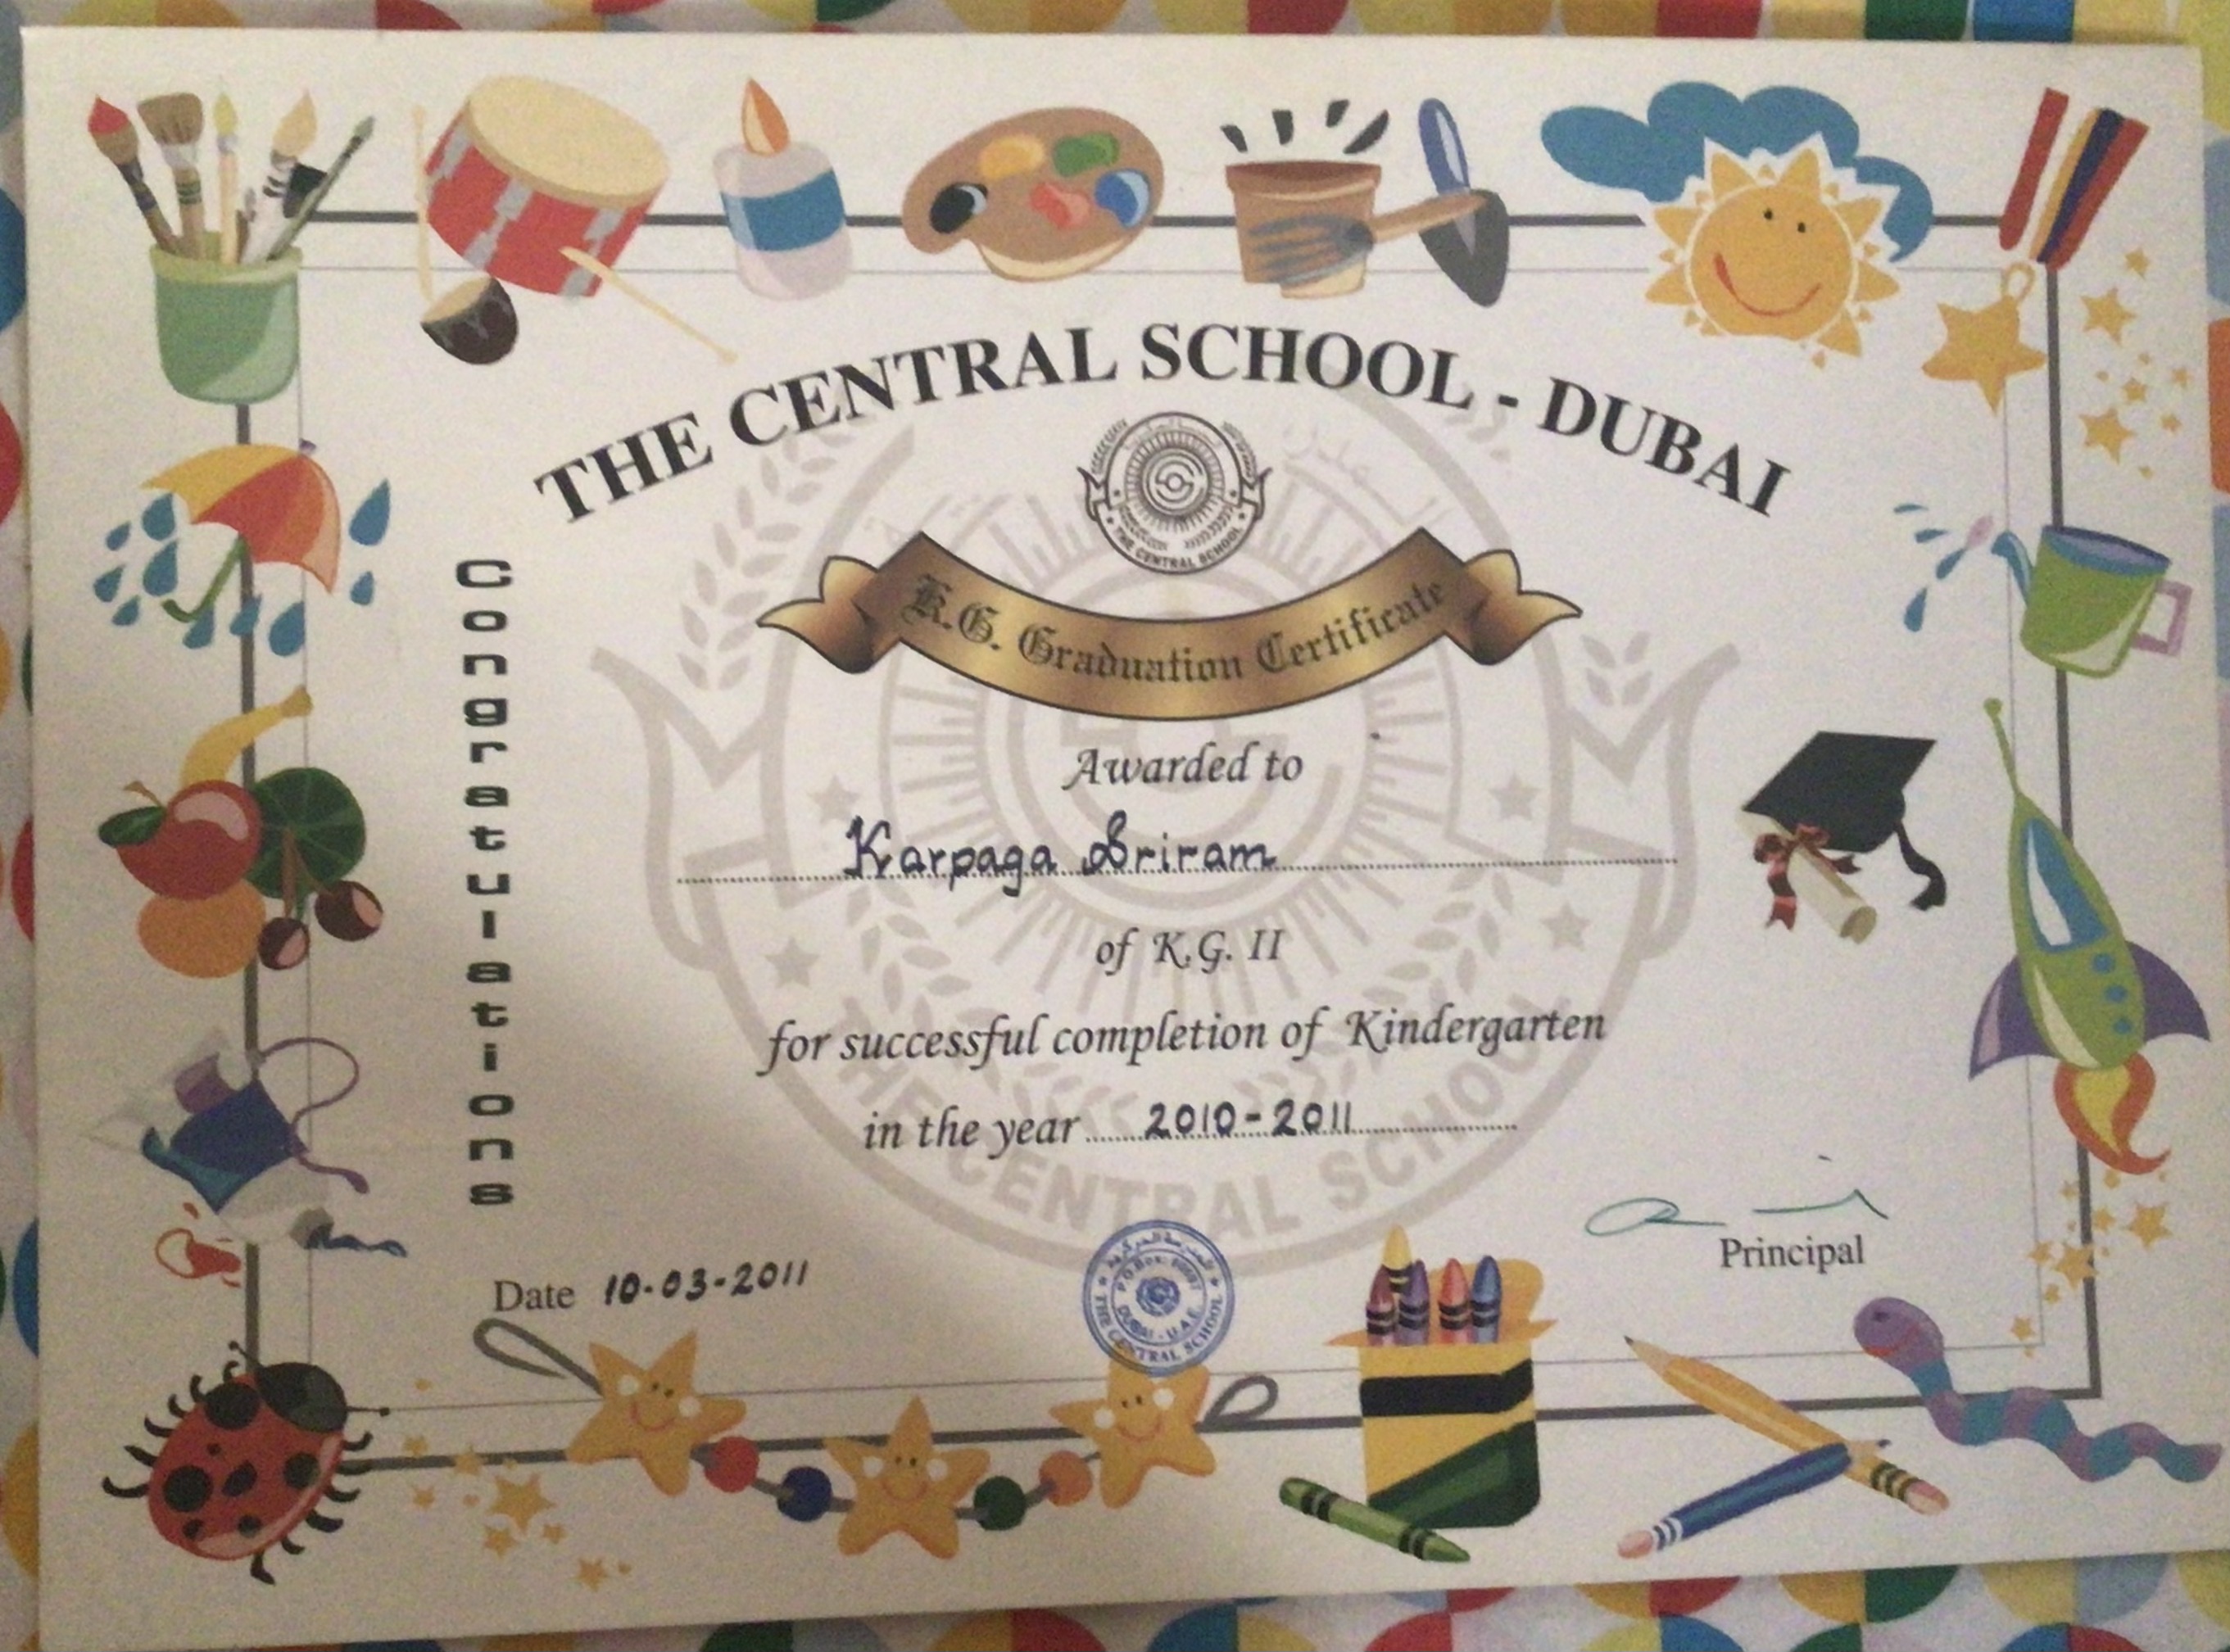 THE CENTRAL SCHOOL - DUBAI
THE CENTRAL SCHOOL
K.G. Graduation Certificate
Congratulations
Awarded to
Karpaga Sriram
of K.G. II
for successful completion of Kindergarten
in the year 2010-2011
THE CENTRAL SCHOOL
Principal
Date 10-03-2011
المدرسة المركزية
P.O.Box:
DUBAI - U.A.E.
THE CENTRAL SCHOOL